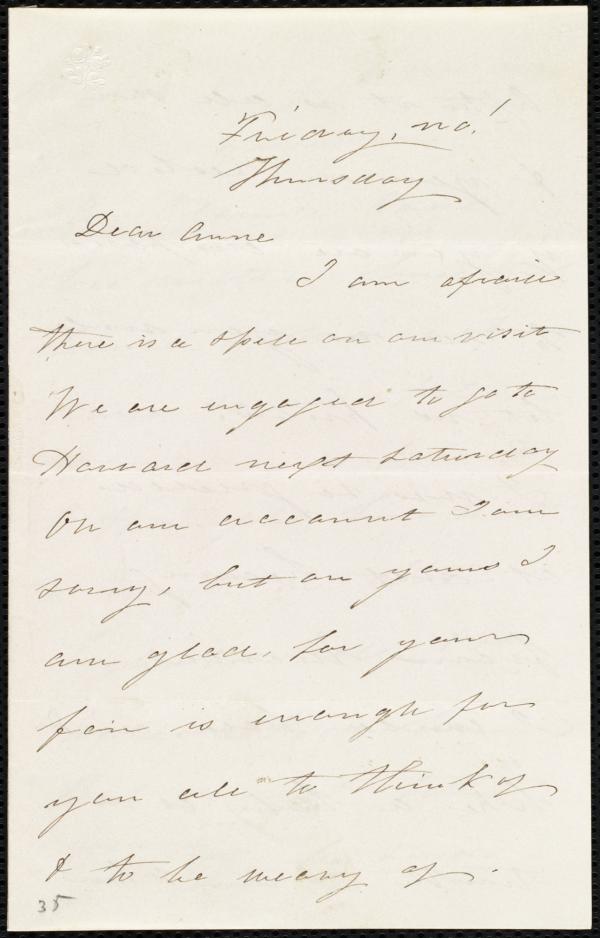 Friday, no!
Thursday
Dear Anne
I am afraid
there is a spell on our visit
We are engaged to go to
Harvard next Saturday
On our account I am
sorry, but on yours I
am glad, for your
fair is enough for
you all to think of
& to be weary of.
35